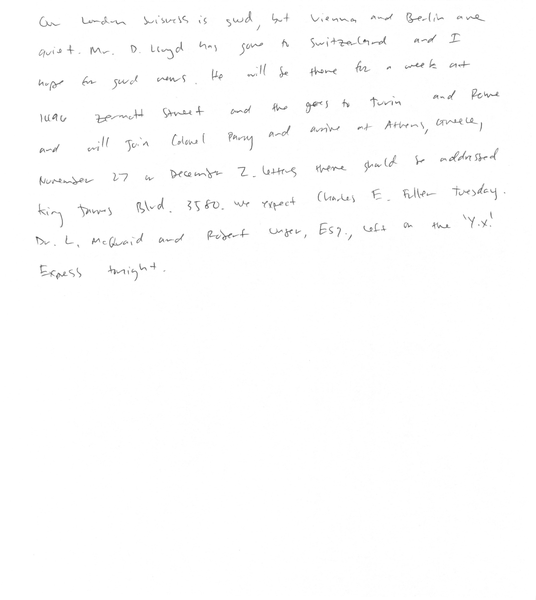 Our London business is good, but Vienna and Berlin are
quiet. Mr. D. Lloyd has gone to Switzerland and I
hope for good news. He will be there for a week at
1496 Zermott Street and the goes to Turin and Rome
and will join Colonel Parry and arrive at Athens, Greece,
November 27 or December 2. Letters there should be addressed
King James Blvd. 3580. We expect Charles E. Fuller Tuesday.
Dr. L. McQuaid and Robert Unger, Esq., left on the 'Y.X.'
Express tonight.